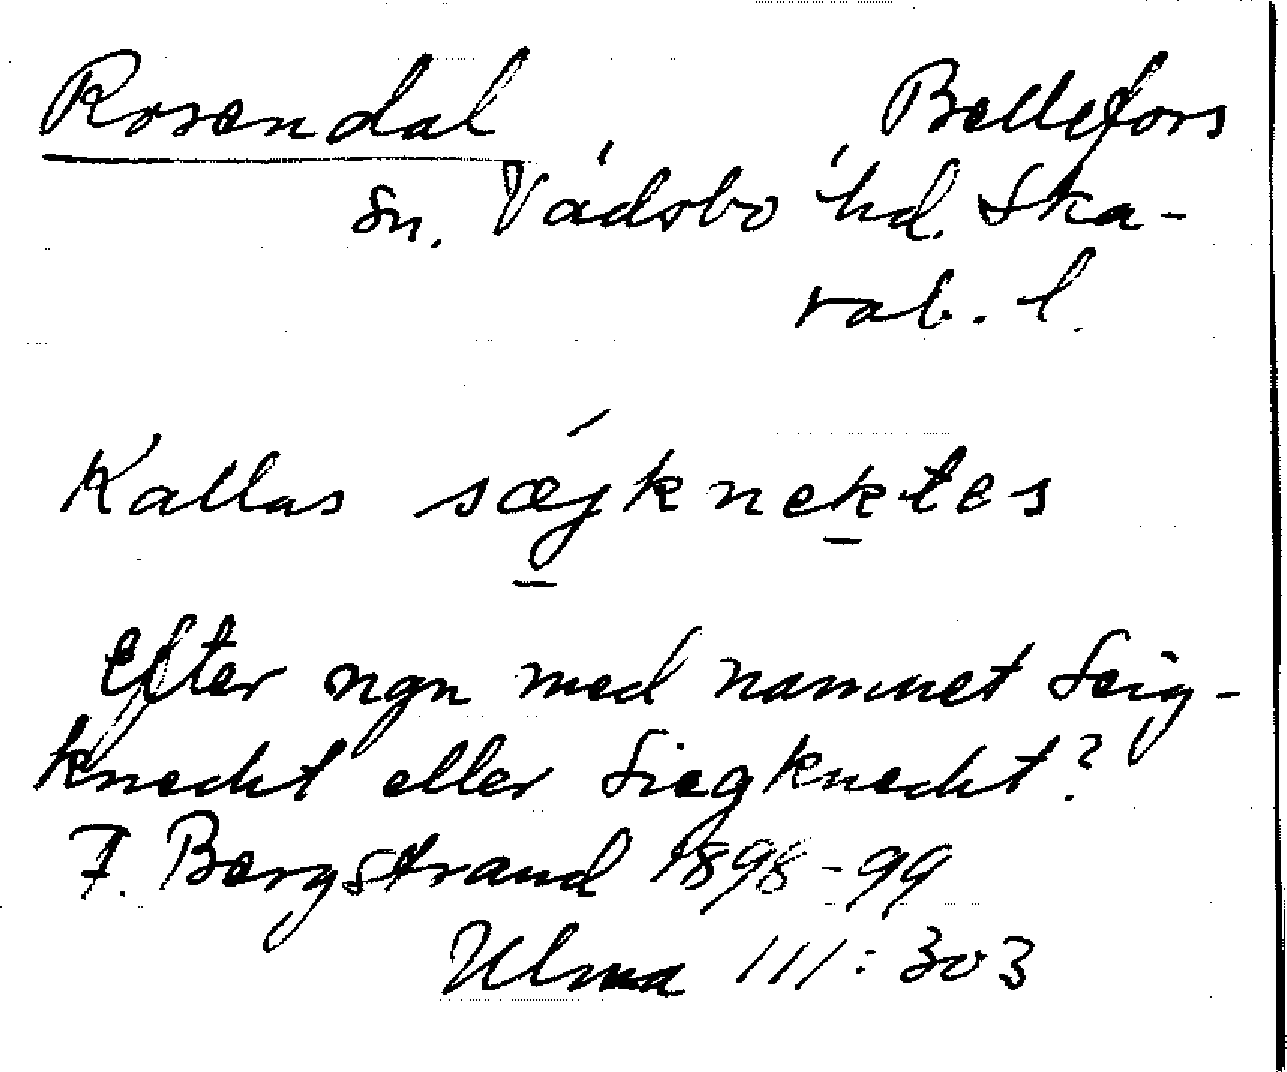 Rosendal Bellefors
sn. Vadsbo hd. Ska-
rab. l.
Kallas sæjknektes
Efter ngn med namnet Seig-
knecht eller Siegknecht?
F. Bergstrand 1898-99
Ulma 111:303